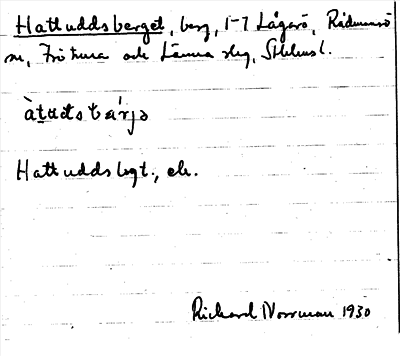 Hattuddsberget, berg, 1-7 Lågarö, Rådmansö
sn, Frötuna och Länna slg, Sthlms l.
àtuds bárjə
Hattudds bgt., ek.
Richard Norrman 1930